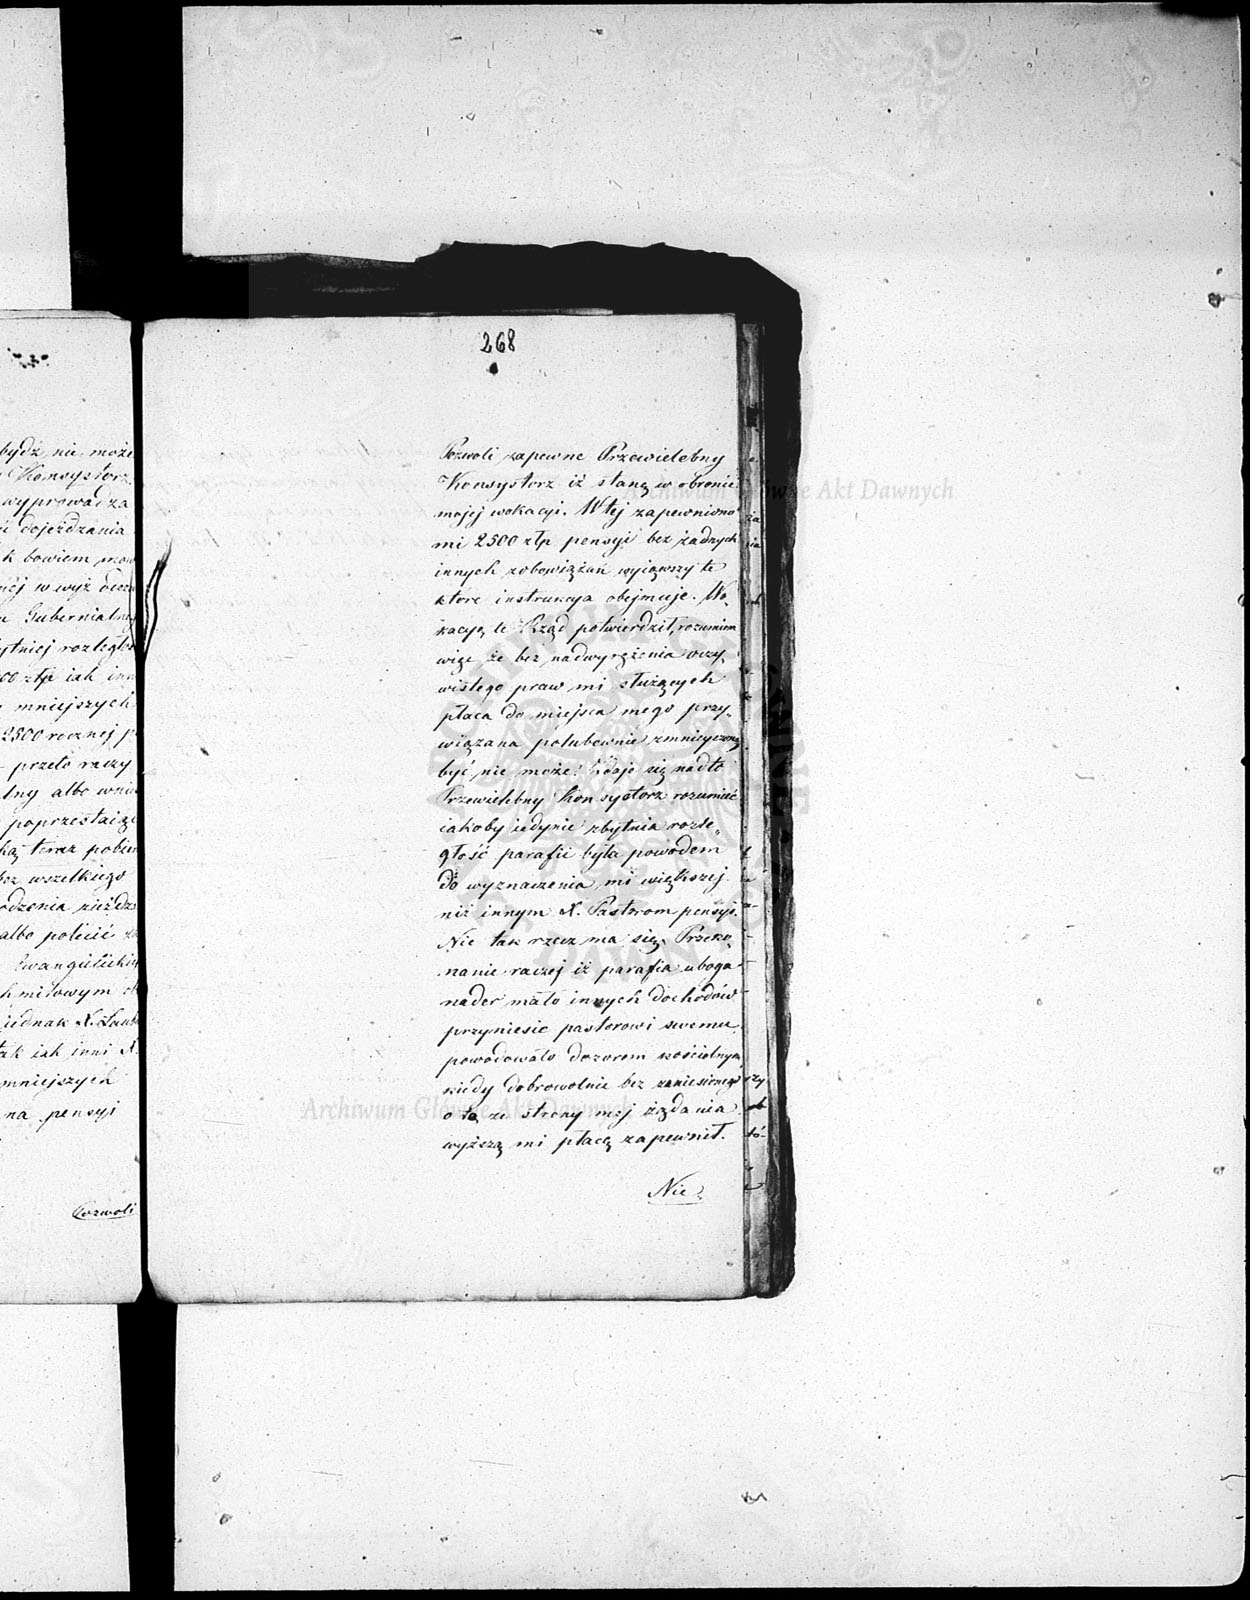 bydź nie może
Konsystorz
wyprowadza
dojeżdzania
k bowiem
nej w wyż
Gubernialney
ytniej rozległo
00 złp iak inn
mniejszych
2500 rocznej p
przeto raczy
lny albo
poprzestaiąc
ką teraz pobier
bez wszelkiego
odzenia
albo polecić
Ewangelickie
iednak X.
tak iak inni X.
mniejszych
na pensyi
Pozwoli
268
Pozwoli zapewne Przewielebny
Konsystorz iż stanę w obronie
mojej wokacyi. W tej zapewniono
mi 2500 złp pensyi bez żadnych
innych zobowiązań wyiąwszy te
które instrukcya obejmuje. Wo„
kacyę te Rząd potwierdził, rozumiem
więc że bez nadwyrężenia oczy„
wistego praw mi służących
płaca do miejsca mego przy„
wiązana polubownie zmnieyszoną
być nie może. Zdaje się nadto
Przewielebny Konsystorz rozumieć
iakoby iedynie zbytnia rozle„
głość parafii była powodem
do wyznaczenia mi większej
niż innym X. Pastorom pensyi.
Nie tak rzecz ma się. Przeko„
nanie raczej iż parafia uboga
nader mało innych dochodów
przyniesie pastorowi swemu
powodowało dozorem kościelnym
kiedy dobrowolnie bez zaniesionego
o to ze strony mej żądania
wyższą mi płacę zapewnił.
Nie
Archiwum Główne Akt Dawnych
Archiwum Główne Akt Dawnych